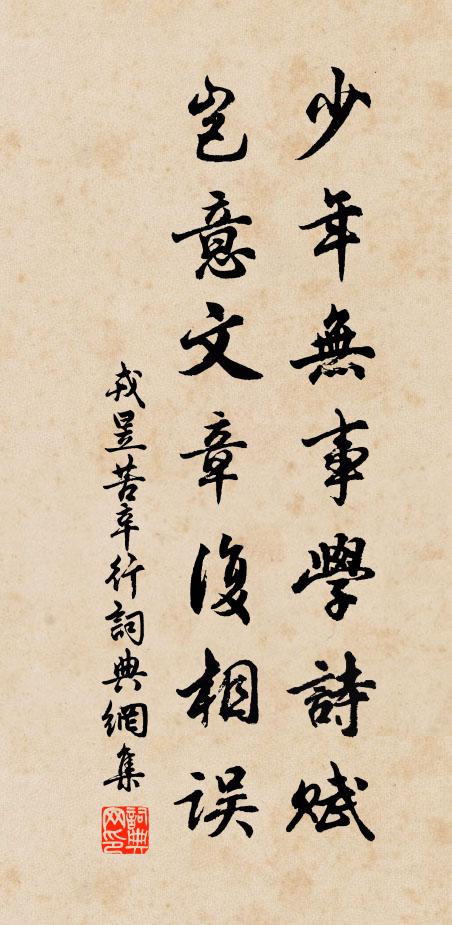 少年無事學詩賦
豈意文章復相误
戎昱苦辛行詞典網集
詞典网印